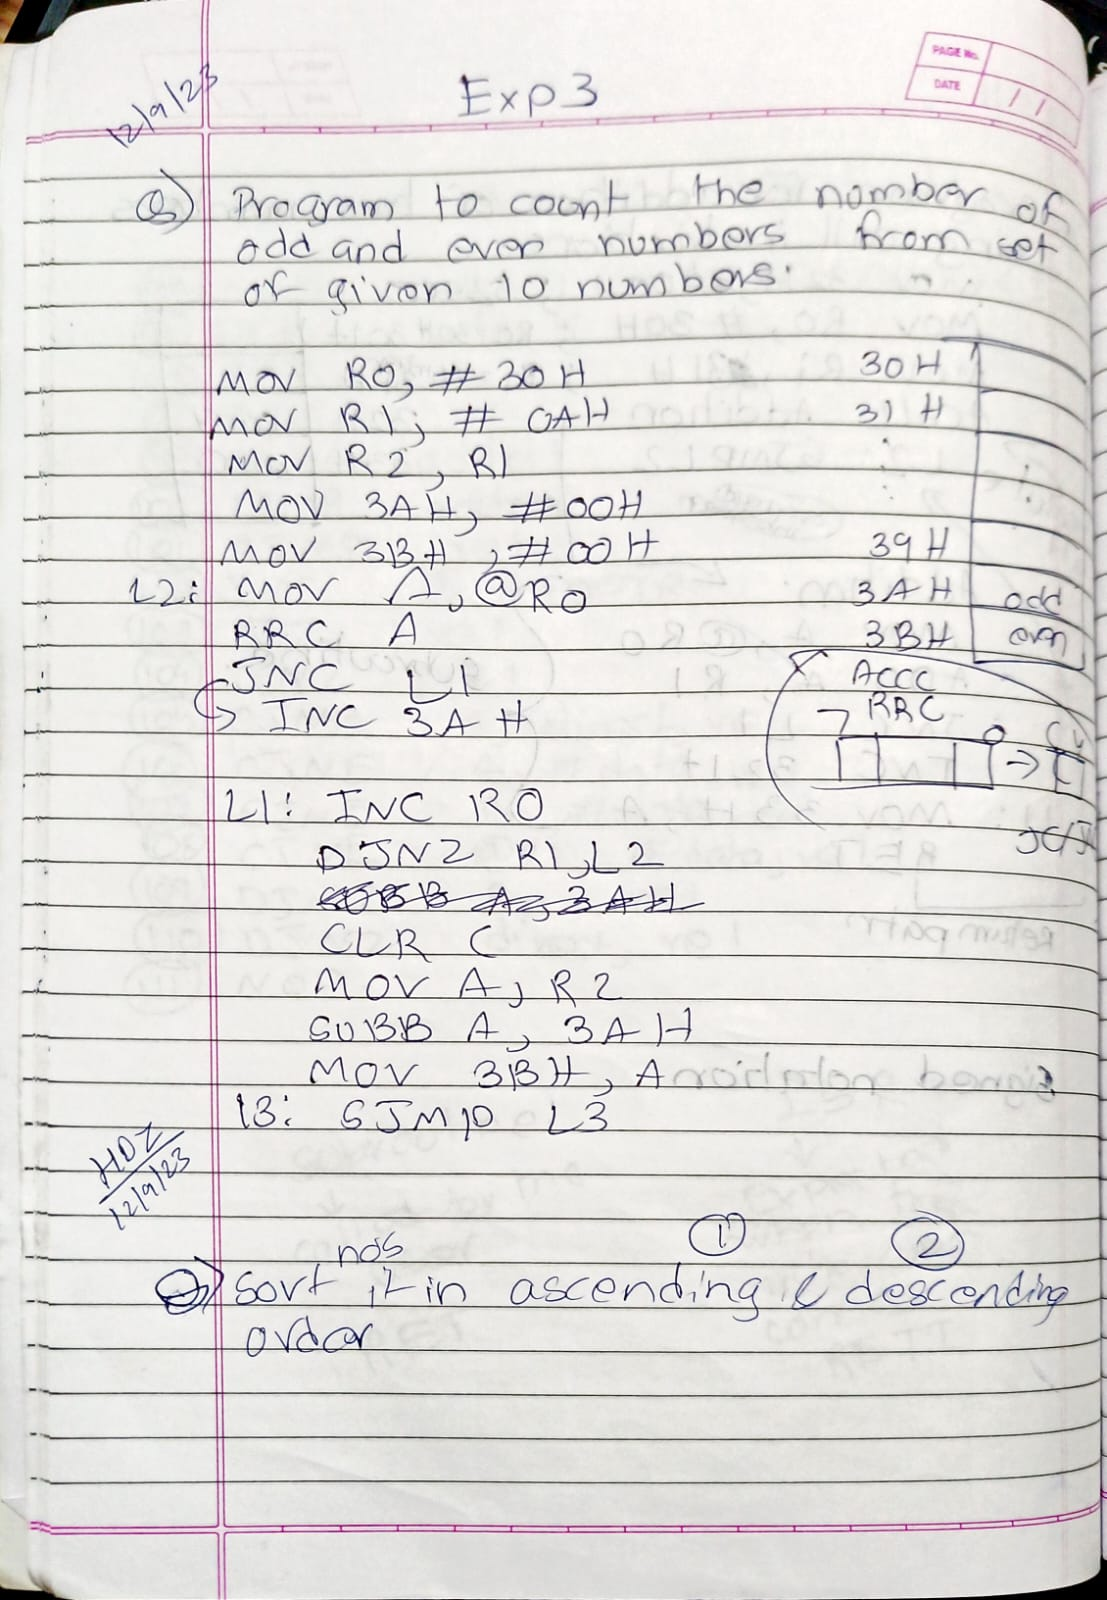 12/9/23
Exp 3
PAGE No.
DATE / /
Q) Program to count the number of
odd and even numbers from set
of given 10 numbers.
MOV R0, #30H
MOV R1, #0AH
MOV R2, R1
MOV 3AH, #00H
MOV 3BH, #00H
L2: MOV A, @R0
RRC A
JNC L1
INC 3AH
L1: INC R0
DJNZ R1, L2
SUBB A, 3AH
CLR C
MOV A, R2
SUBB A, 3AH
MOV 3BH, A
L3: SJMP L3
30H
31H
39H
3AH odd
3BH even
ACCC
RRC
7 0 Cy
HDZ
12/9/23
nos ① ②
Q) Sort it in ascending & descending
order